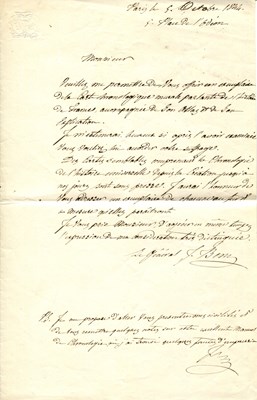 Paris le 5 Octobre 1844.
5. Place de l'Odéon
Monsieur
Veuillez me permettre de Vous offrir un exemplaire
de la Carte chronologique murale parlante de l'histoire
de France, accompagnée de son Atlas & de son
explication.
Je m'estimerai heureux si après l'avoir examinée
Vous voulez lui accorder votre suffrage.
Des Cartes semblables comprenant la Chronologie
de l'histoire universelle depuis la Création jusqu'à
nos jours sont sous presse. J'aurai l'honneur de
Vous adresser un exemplaire de chacune au fur &
à mesure qu'elles paraîtront.
Je Vous prie Monsieur d'agréer en même temps
l'expression de ma considération très distinguée.
Le Général J. Bem
PS. Je me propose d'aller Vous présenter mes civilités &
de Vous remettre quelques notes sur cette excellente
de Chronologie qui a trouvé quelques